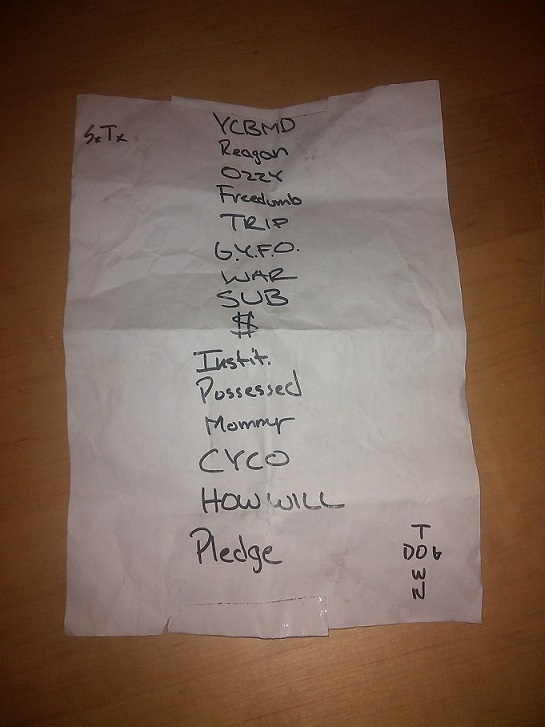 SxTx
YCBMD
Reagan
OZZY
Freedumb
TRIP
G.Y.F.O.
WAR
SUB
$
Instit.
Possessed
Mommy
CYCO
HOW WILL
Pledge
T
DOG
W
N